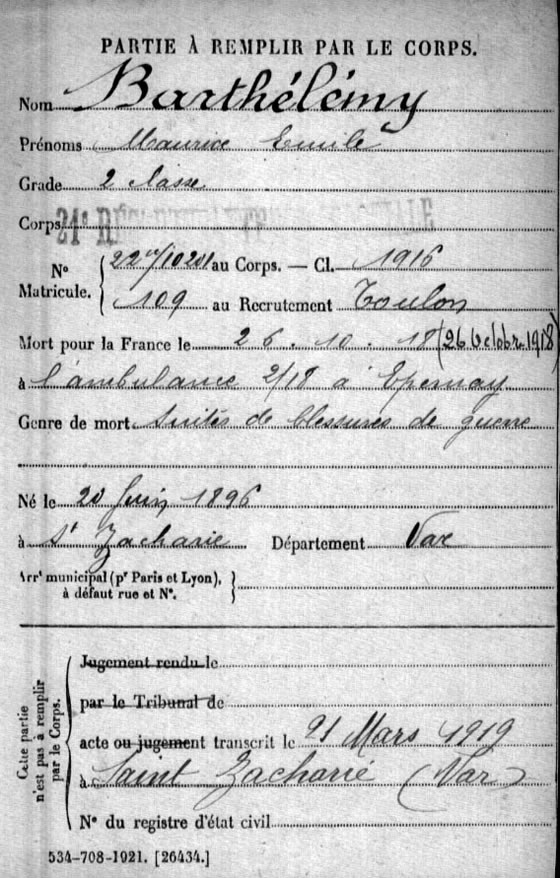 PARTIE À REMPLIR PAR LE CORPS.
Nom Barthélémy
Prénoms Maurice Emile
Grade 2 classe
Corps 21e
No Matricule. 22 /10201 au Corps. — Cl. 1916
109 au Recrutement Toulon
Mort pour la France le 26 . 10 . 18 (26 Octobre 1918)
à l'ambulance 2/18 à Epernay
Genre de mort Suites de blessures de guerre
Né le 20 Juin 1896
à St Zacharie Département Var
Arrt municipal (pr Paris et Lyon), à défaut rue et No.
Cette partie n'est pas à remplir par le Corps.
Jugement rendu le
par le Tribunal de
acte ou jugement transcrit le 21 Mars 1919
à Saint Zacharie (Var)
No du registre d'état civil
534-708-1921. [26434.]